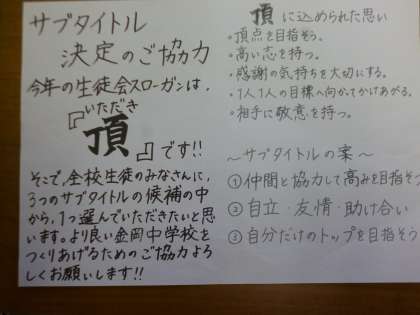 サブタイトル
決定のご協力
今年の生徒会スローガンは、
『頂』です!!
いただき
そこで、全校生徒のみなさんに、
3つのサブタイトルの候補の中
から、1つ選んでいただきたいと思
います。より良い金岡中学校を
つくりあげるためのご協力よろ
しくお願いします!!
頂に込められた思い
・頂点を目指そう。
・高い志を持つ。
・感謝の気持ちを大切にする。
・1人1人の目標へ向かってかけあがる。
・相手に敬意を持つ。
~サブタイトルの案~
①仲間と協力して高みを目指そ
②自立・友情・助け合い
③自分だけのトップを目指そう